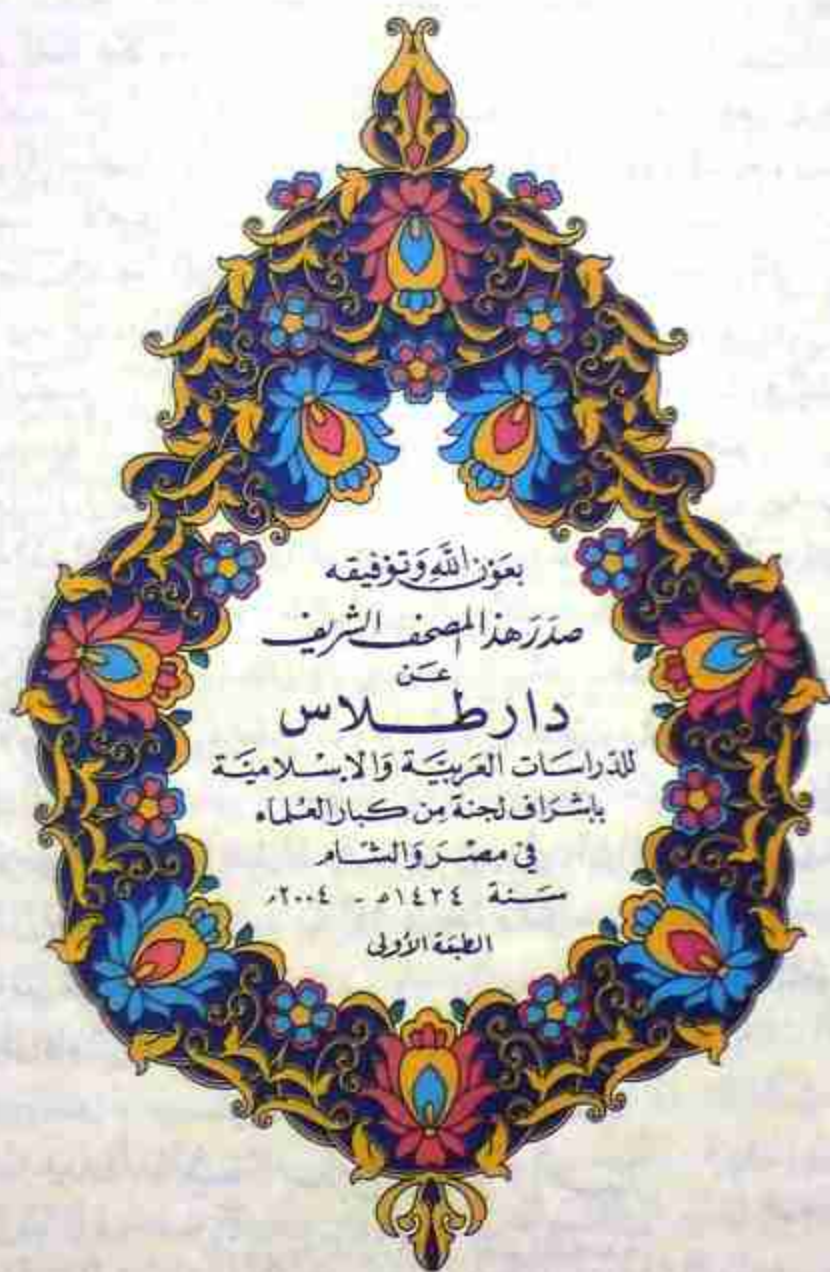 بعَون اللَّه وَتوفيقه
صدَرَ هذا المصحف الشريف
عَن
دار طلاس
للدّراسَات العَربيَّة وَالابسْلاميَّة
بإشرَاف لجنة من كبار العُلماء
في مصْر وَالشام
سَنة ١٤٢٤هـ - ٢٠٠٤م
الطبعَة الأولى